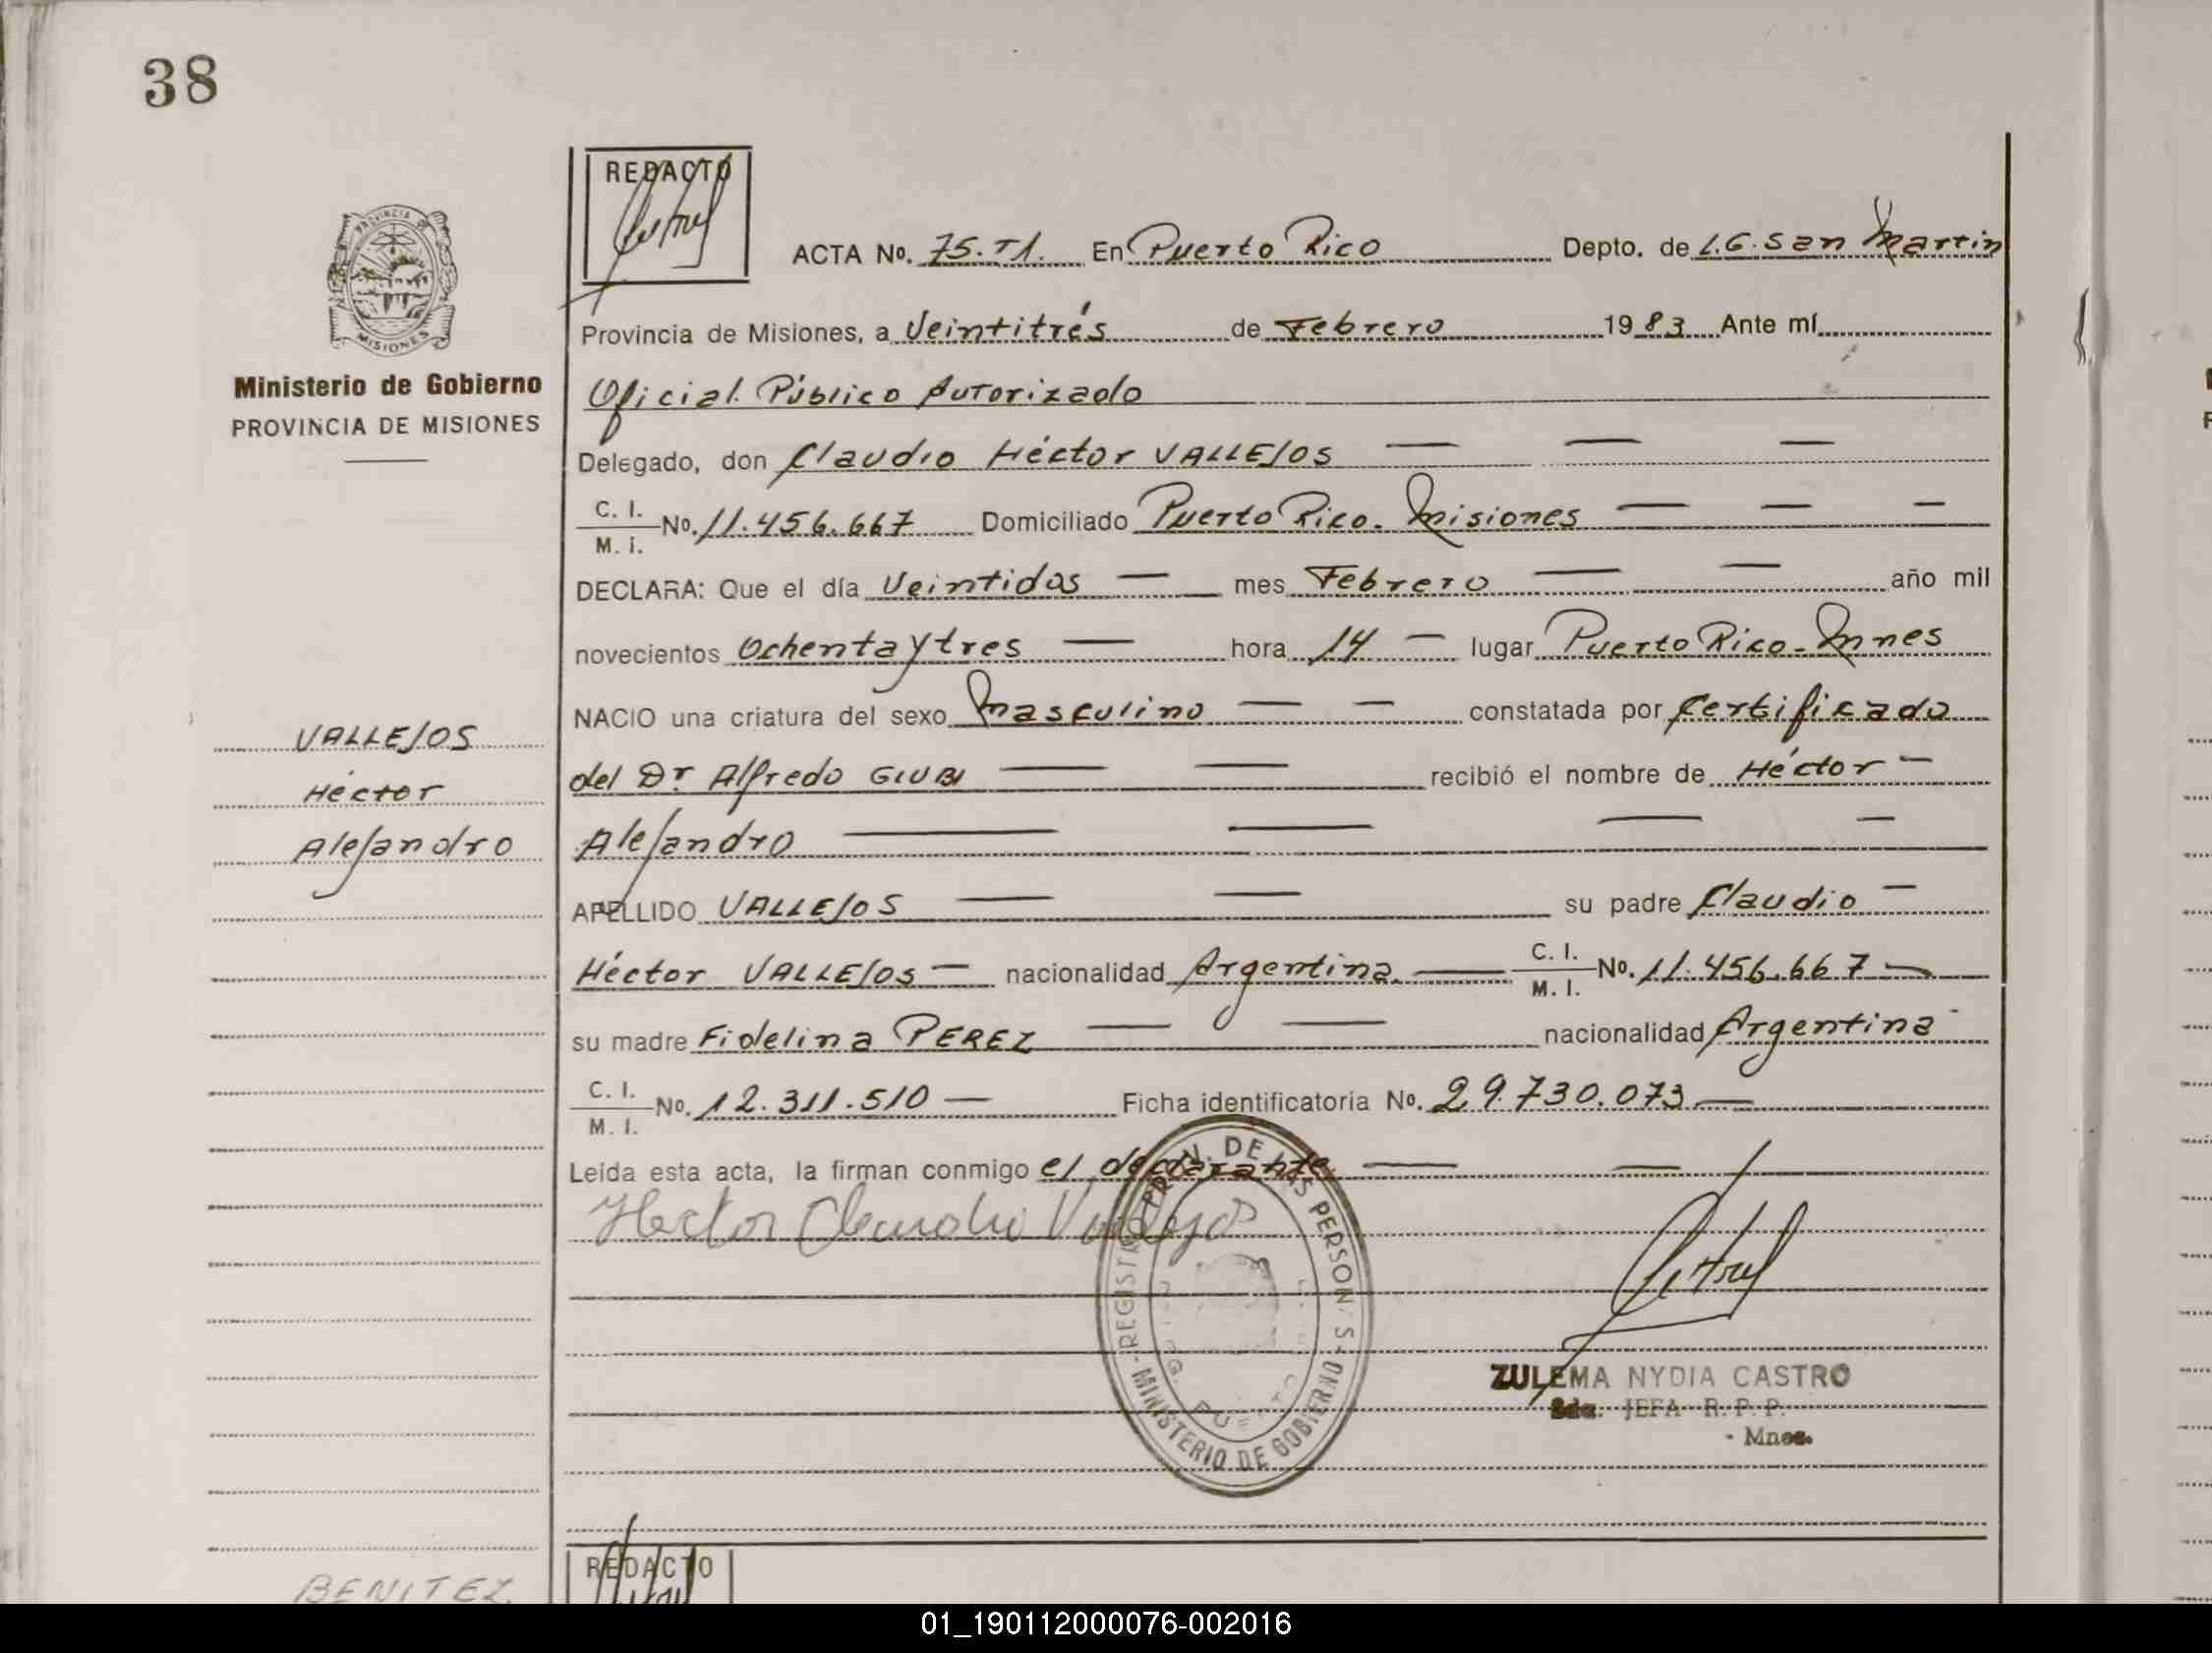 38
REDACTO
ACTA No. 75. T1. En Puerto Rico Depto. de L.G. San Martin
Provincia de Misiones, a Veintitrés de Febrero 1983 Ante mí
Oficial Público Autorizado
Ministerio de Gobierno
PROVINCIA DE MISIONES
Delegado, don Claudio Héctor VALLEJOS
C. I.
M. I. No. 11.456.667 Domiciliado Puerto Rico. Misiones
DECLARA: Que el día Veintidos mes Febrero año mil
novecientos Ochenta y tres hora 14 lugar Puerto Rico - Mnes
NACIO una criatura del sexo Masculino constatada por Certificado
VALLEJOS
Héctor
Alejandro
del Dr. Alfredo GIUBI recibió el nombre de Héctor
Alejandro
APELLIDO VALLEJOS su padre Claudio
Héctor VALLEJOS nacionalidad Argentina C. I. M. I. No. 11.456.667
su madre Fidelina PEREZ nacionalidad Argentina
C. I.
M. I. No. 12.311.510 Ficha identificatoria No. 29.730.073
Leída esta acta, la firman conmigo el declarante
Hector Claudio Vallejos
MINISTERIO DE GOBIERNO
ZULEMA NYDIA CASTRO
JEFA R. P. P.
- Mnes.
REDACTO
BENITEZ
01_190112000076-002016